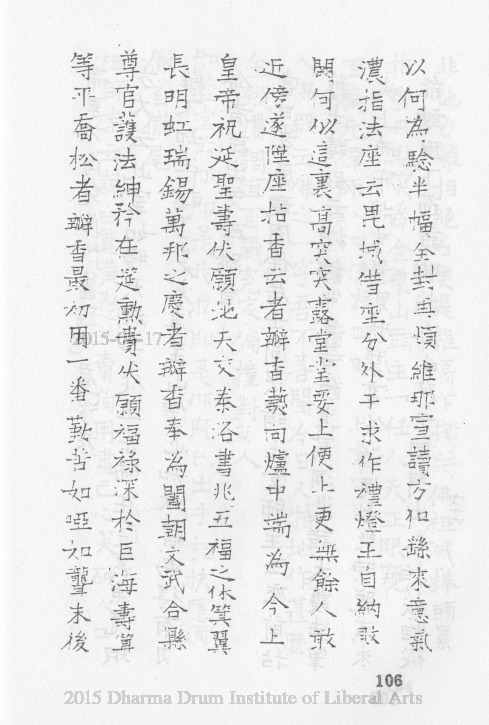 以何為驗半幅全封再煩維那宣讀方知繇來意氣
濃指法座云毘城借座分外干求作禮燈王自納敗
闕何似這裏高突突露堂堂要上便上更無餘人敢
近傍遂陞座拈香云者瓣香爇向爐中端為今上
皇帝祝延聖壽伏願地天交泰洛書兆五福之休箕翼
長明虹瑞錫萬邦之慶者瓣香奉為闔朝文武合縣
尊官護法紳衿在筵勳貴伏願福祿深於巨海壽算
等平喬松者瓣香最初因一番勤苦如啞如聾末後
106
2015-09-17
2015 Dharma Drum Institute of Liberal Arts